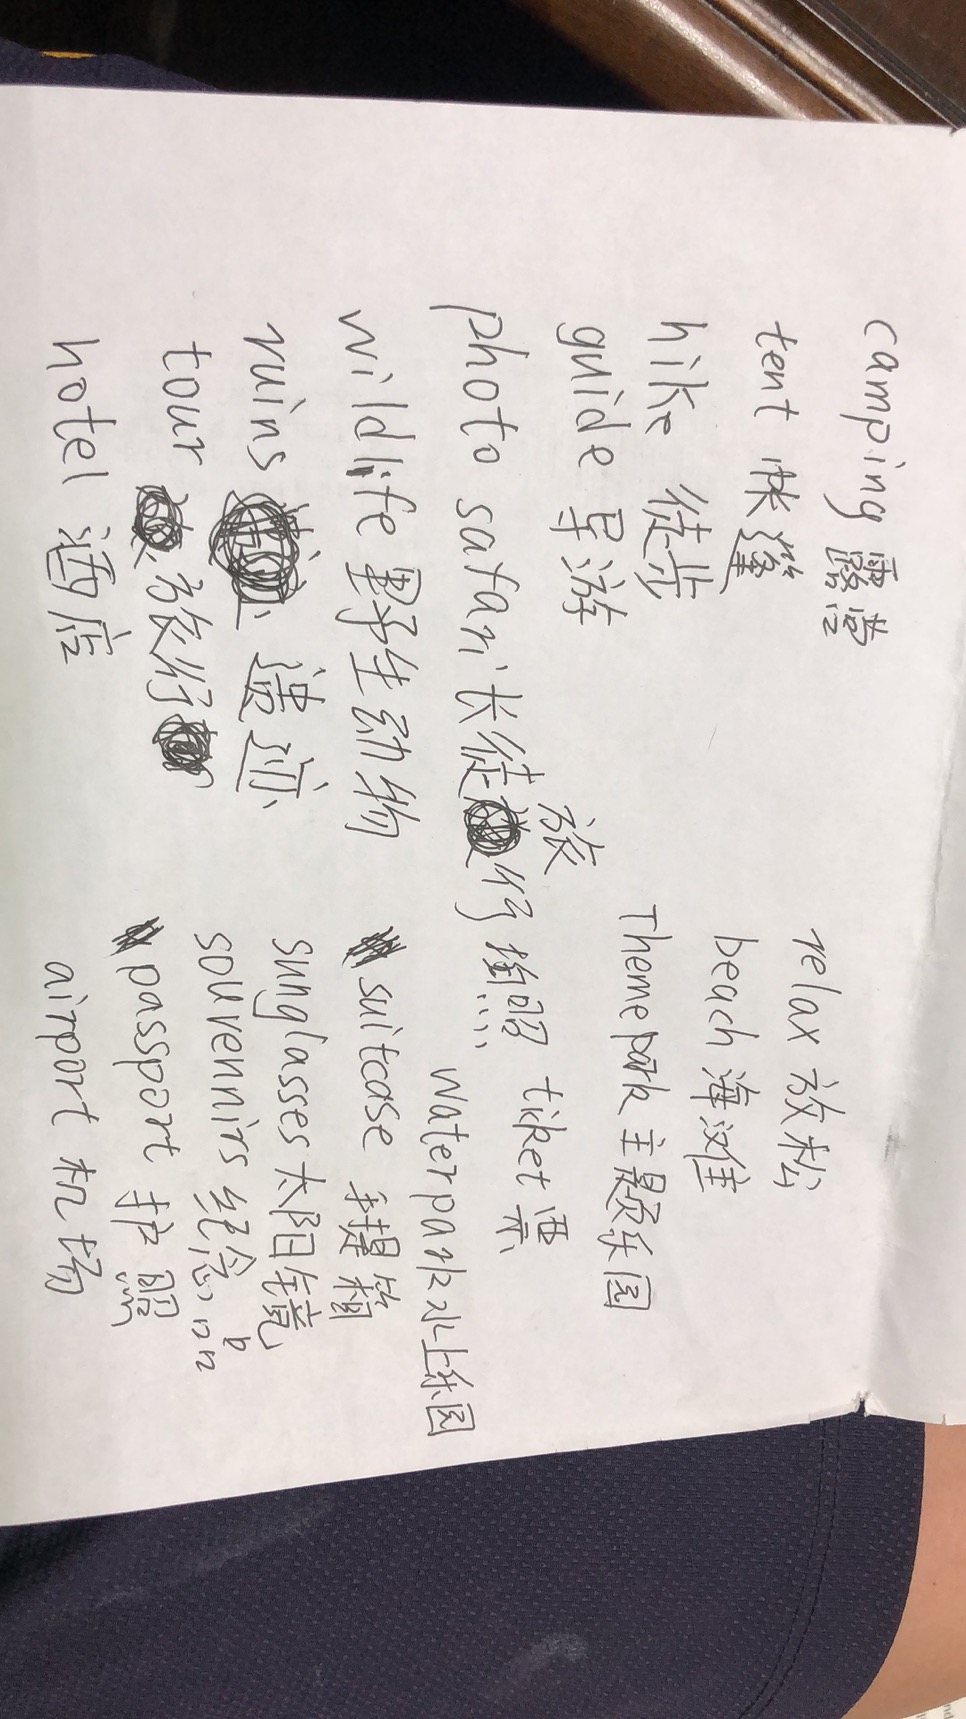 camping 露营
tent 帐篷
hike 徒步
guide 导游
photo safari 长徒旅行 拍照
wildlife 野生动物
ruins 遗迹
tour 旅行
hotel 酒店
relax 放松
beach 海滩
Theme park 主题乐园
ticket 票
waterpark 水上乐园
suitcase 手提箱
sunglasses 太阳镜
souvennirs 纪念品
passport 护照
airport 机场